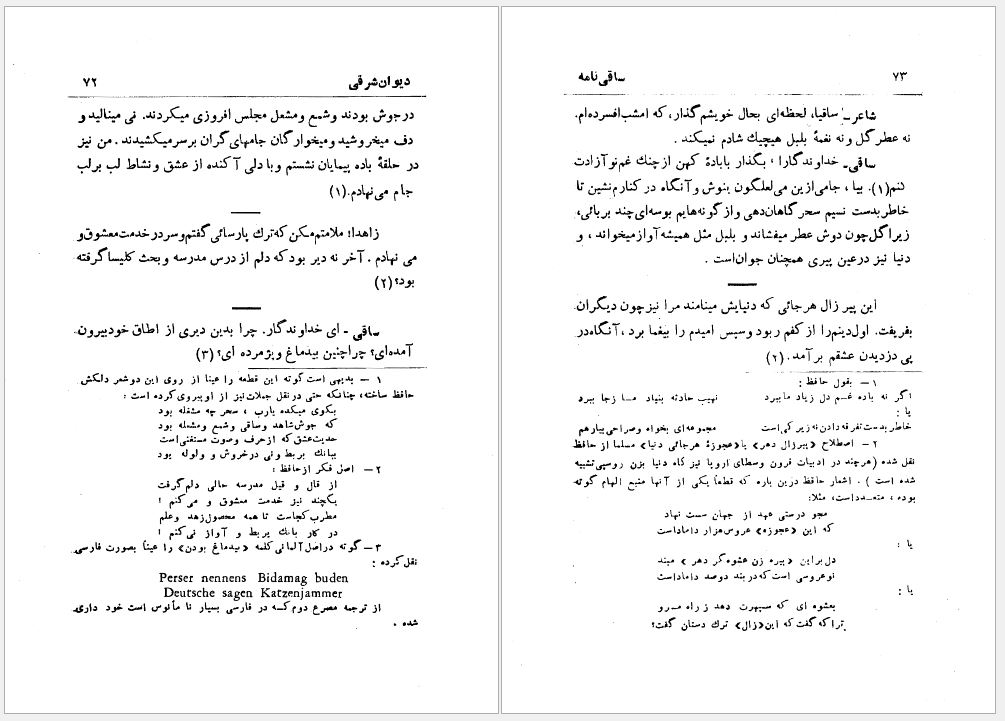 ۷۲ دیوان‌شرقی
درجوش بودند وشمع ومشعل مجلس افروزی میکردند. نی مینالید و
دف میخروشید ومیخوارگان جامهای‌گران برسرمیکشیدند. من نیز
در حلقهٔ باده پیمایان نشستم وبا دلی آکنده از عشق ونشاط لب برلب
جام می‌نهادم.(۱)
زاهدا؛ ملامتم‌مکن که‌ترك پارسائی گفتم‌وسردرخدمت‌معشوق‌و
می نهادم . آخر نه دیر بود که دلم از درس مدرسه وبحث کلیسا گرفته
بود؟(۲)
ساقی - ای خداوندگار. چرا بدین دیری از اطاق خودبیرون
آمده‌ای؟ چراچنین بیدماغ وپژمرده ای؟ (۳)
۱ – بدیهی است گوته این قطعه را عیناً از روی این دوشعر دلکش
حافظ ساخته، چنانکه حتی در نقل جملات‌نیز از او پیروی‌کرده است :
بکوی میکده یارب ، سحر چه مشغله بود
که جوش‌شاهد وساقی وشمع ومشعله بود
حدیث‌عشق که ازحرف وصوت مستغنی‌است
ببانك بربط ونی درخروش و ولوله بود
۲ – اصل فکر ازحافظ :
از قال و قیل مدرسه حالی دلم‌گرفت
یکچند نیز خدمت معشوق و می‌کنم !
مطرب‌کجاست تا همه محصول‌زهد وعلم
در کار بانك بربط و آواز نی‌کنم !
۳ – گوته دراصل آلمانی‌کلمه «بیدماغ بودن» را عیناً بصورت فارسی
نقل‌کرده :
Perser nennens Bidamag buden
Deutsche sagen Katzenjammer
از ترجمه مصرع دوم‌که در فارسی بسیار نا مأنوس است خود داری
شده .
ساقی‌نامه ۷۳
شاعر ـ ساقیا، لحظه‌ای بحال خویشم‌گذار، که امشب‌افسرده‌ام.
نه عطر گل و نه نغمهٔ بلبل هیچیك شادم نمیکند .
ساقی ـ خداوندگارا ، بگذار بابادهٔ کهن ازچنك غم‌نو آزادت
کنم(۱). بیا ، جامی‌ازین می‌لعلگون بنوش و آنگاه در کنارم‌نشین تا
خاطربدست نسیم سحرگاهان‌دهی و از گونه‌هایم بوسه‌ای چند بربائی،
زیراگل‌چون دوش عطر میفشاند و بلبل مثل همیشه آوازمیخواند ، و
دنیا نیز درعین پیری همچنان جوان‌است .
این پیر زال هرجائی که دنیایش مینامند مرا نیزچون دیگران
بفریفت. اول‌دینم‌را ازکفم ربود وسپس امیدم را بیغما برد ، آنگاه‌در
پی دزدیدن عشقم برآمد. (۲)
۱ – بقول حافظ :
اگر نه باده غم دل زیاد ما ببرد نهیب حادثه بنیاد ما زجا ببرد
یا :
خاطربدست‌تفرقه‌دادن‌نه‌زیرکی‌است مجموعه‌ای بخواه وصراحی‌بیارهم
۲ – اصطلاح «پیرزال دهر» یا «عجوزهٔ هرجائی دنیا» مسلما از حافظ
نقل شده (هرچند در ادبیات قرون وسطای اروپا نیز گاه دنیا بزن روسپی‌تشبیه
شده است ) . اشعار حافظ درین باره که قطعاً یکی از آنها منبع الهام گوته
بوده ، متعدداست، مثلا:
مجو درستی عهد از جهان سست نهاد
که این «عجوزه» عروس‌هزار داماداست
یا :
دل‌براین «پیره زن عشوه‌گر دهر» مبند
نوعروسی است‌که‌دربند دوصد داماداست
یا :
بعشوه ای که سپهرت دهد ز راه مرو
تراکه‌گفت که این«زال» ترك دستان گفت؟